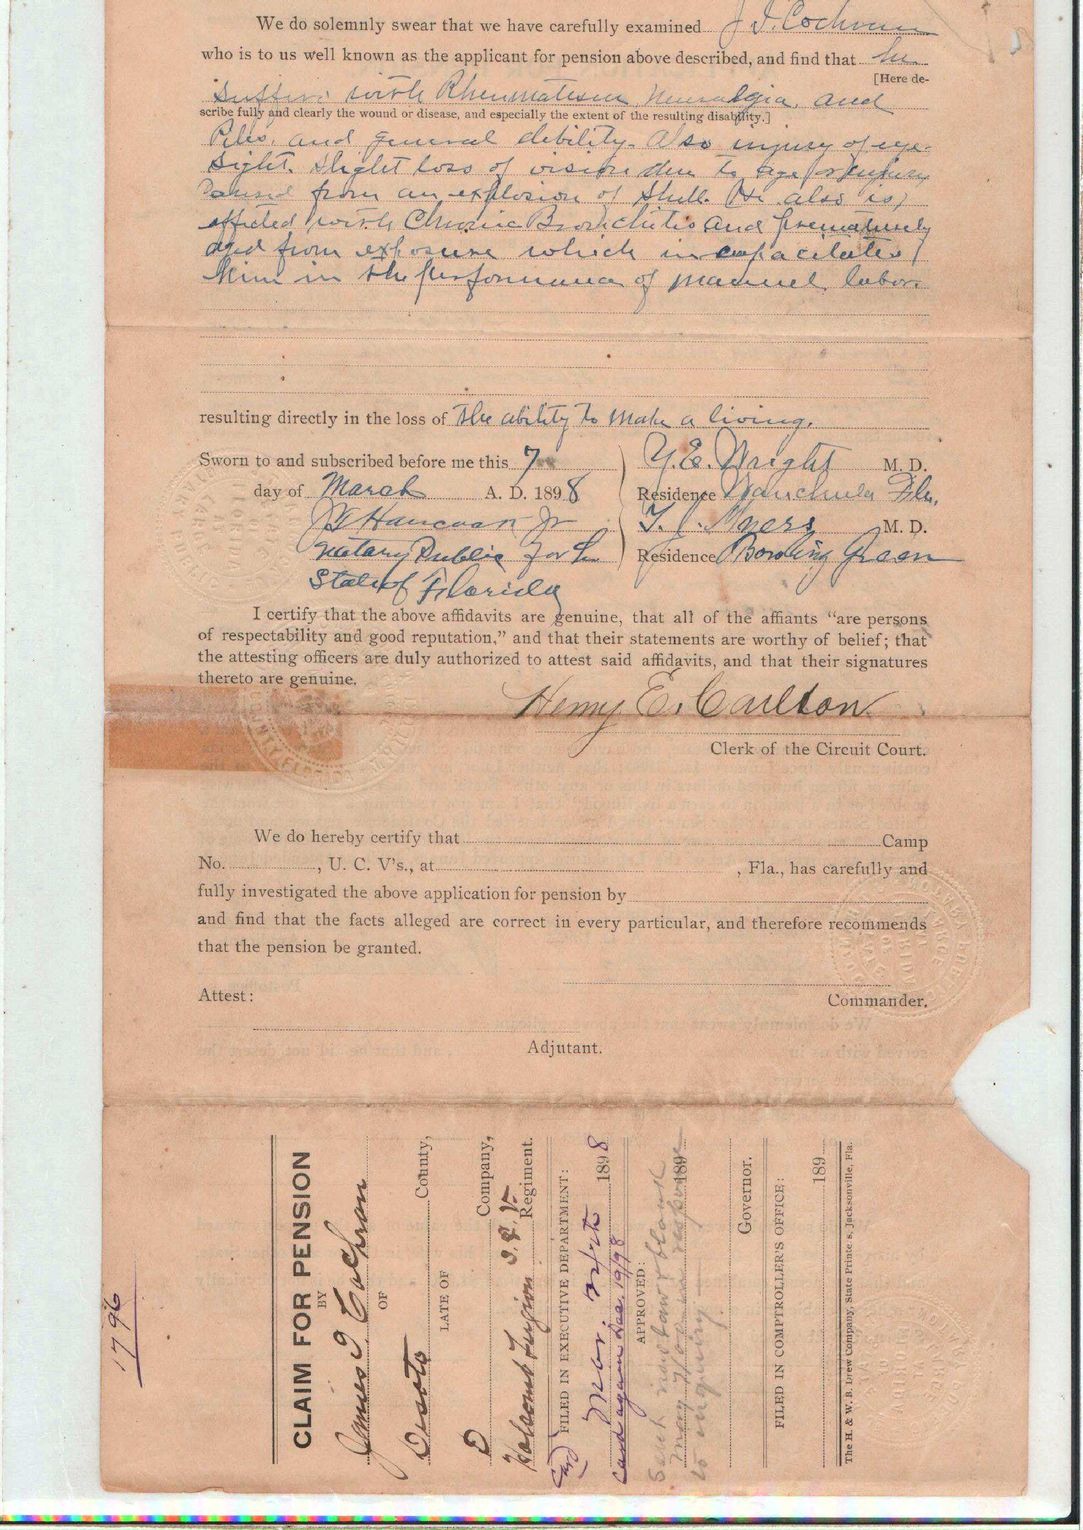 We do solemnly swear that we have carefully examined J. I. Cochran
who is to us well known as the applicant for pension above described, and find that he
[Here de-
suffers with Rheumatism, Neuralgia, and
scribe fully and clearly the wound or disease, and especially the extent of the resulting disability.]
Piles, and general debility. Also injury of eye-
sight. Slight loss of vision due to age or injury
caused from an explosion of shell. He also is
effected with Chronic Bronchitis and prematurely
aged from exposure which incapacitates
him in the performance of manuel labor.
resulting directly in the loss of the ability to make a living.
Sworn to and subscribed before me this 7
day of March A. D. 1898
Hancock Jr
Notary Public for the
State of Florida
Y. E. Wright M. D.
Residence Wauchula Fla.
T. J. Myers M. D.
Residence Bowling Green
I certify that the above affidavits are genuine, that all of the affiants "are persons
of respectability and good reputation," and that their statements are worthy of belief; that
the attesting officers are duly authorized to attest said affidavits, and that their signatures
thereto are genuine.
Henry E. Carlton
Clerk of the Circuit Court.
We do hereby certify that Camp
No. , U. C. V's., at , Fla., has carefully and
fully investigated the above application for pension by
and find that the facts alleged are correct in every particular, and therefore recommends
that the pension be granted.
Attest: Commander.
Adjutant.
1796
CLAIM FOR PENSION
BY
James I. Cochran
OF
Desoto County,
LATE OF
D Company,
Holcomb Legion S. C. V. Regiment.
FILED IN EXECUTIVE DEPARTMENT:
Mar. 1898
and again Dec. 19/98
APPROVED:
189
Sent new law & blank
to inquiry
Governor.
FILED IN COMPTROLLER'S OFFICE:
189
The H. & W. B. Drew Company, State Printers, Jacksonville, Fla.